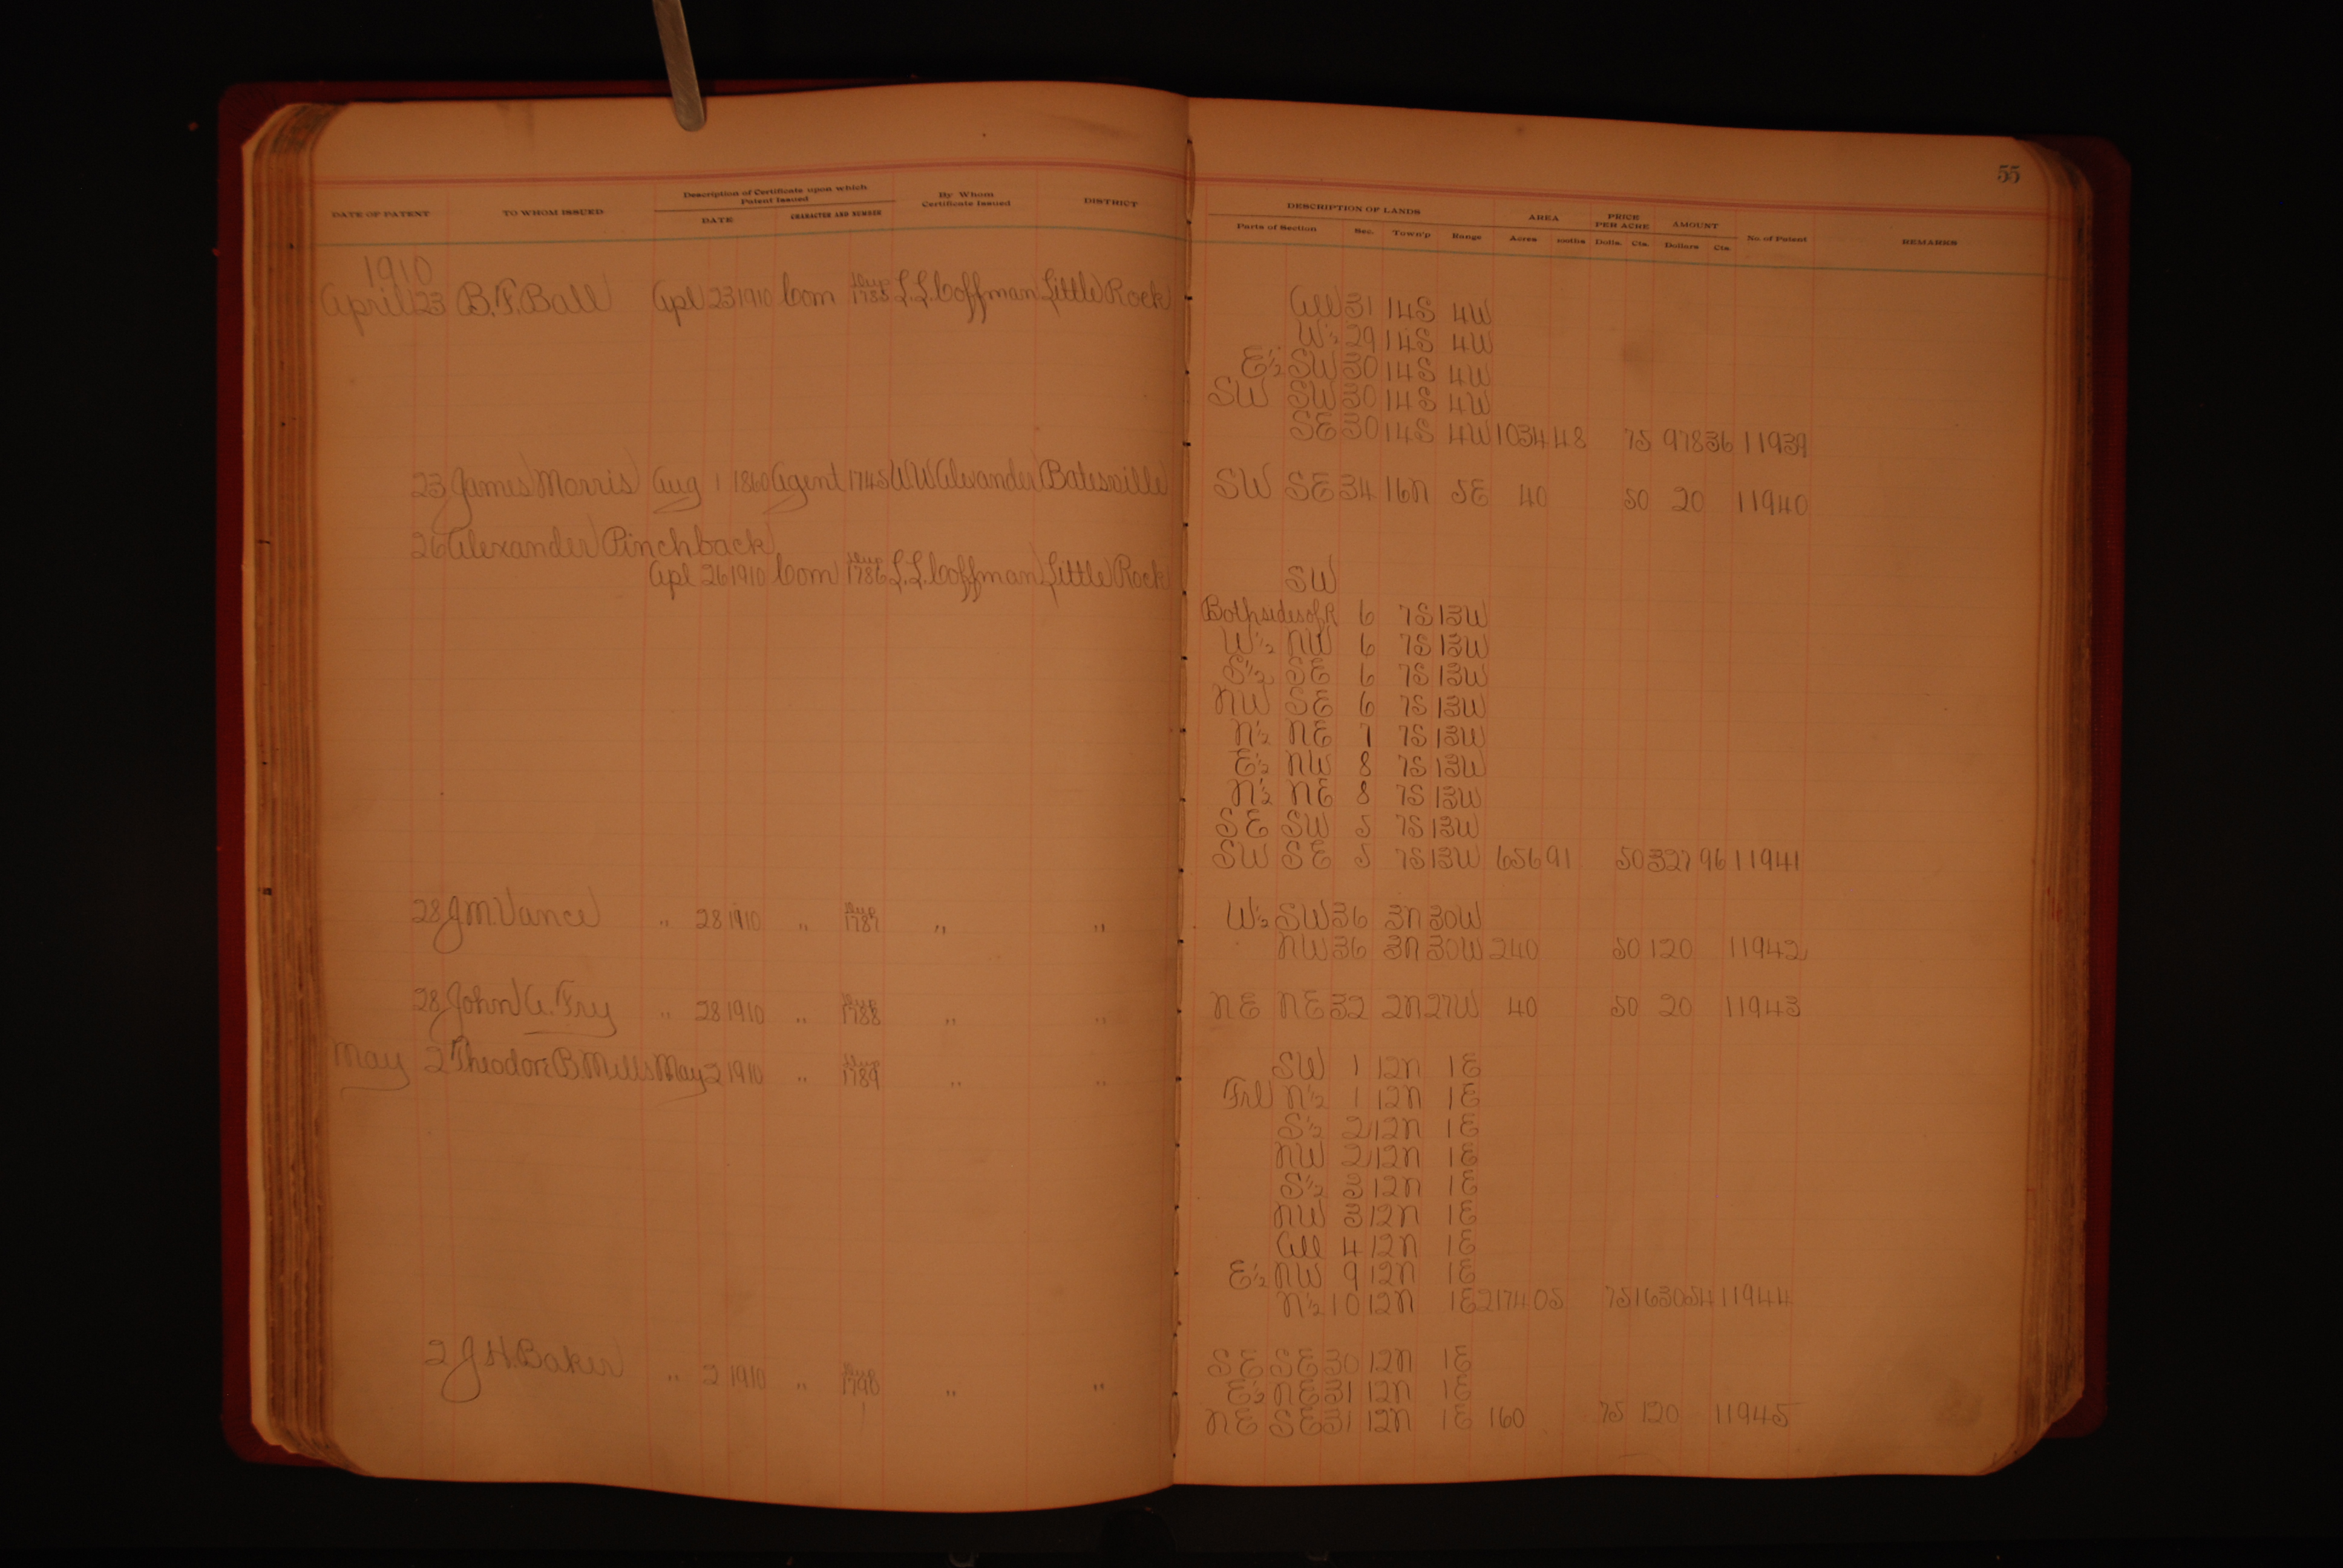 55
DATE OF PATENT TO WHOM ISSUED Description of Certificate upon which Patent Issued DATE CHARACTER AND NUMBER By Whom Certificate Issued DISTRICT DESCRIPTION OF LANDS Parts of Section Sec. Town'p Range AREA Acres 100ths PRICE PER ACRE Dolls. Cts. AMOUNT Dollars Cts. No. of Patent REMARKS
1910
April 23 B.F. Ball Apl 23 1910 Com Dup 1785 L.L. Coffman Little Rock All 31 14S 4W
W½ 29 14S 4W
E½ SW 30 14S 4W
SW SW 30 14S 4W
SE 30 14S 4W 1034 48 75 978 36 11939
23 James Morris Aug 1 1860 Agent 1745 W W Alexander Batesville SW SE 34 16N 5E 40 50 20 11940
26 Alexander Pinchback
Apl 26 1910 Com Dup 1786 L.L. Coffman Little Rock SW
Both sides of R 6 7S 13W
W½ NW 6 7S 13W
S½ SE 6 7S 13W
NW SE 6 7S 13W
N½ NE 7 7S 13W
E½ NW 8 7S 13W
N½ NE 8 7S 13W
SE SW 5 7S 13W
SW SE 5 7S 13W 656 91 50 327 96 11941
28 J.M. Vance " 28 1910 " Dup 1787 " " W½ SW 36 3N 30W
NW 36 3N 30W 240 50 120 11942
28 John A. Fry " 28 1910 " Dup 1788 " " NE NE 32 2N 27W 40 50 20 11943
May 2 Theodore B. Mills May 2 1910 " Dup 1789 " " SW 1 12N 1E
Frl N½ 1 12N 1E
S½ 2 12N 1E
NW 2 12N 1E
S½ 3 12N 1E
NW 3 12N 1E
All 4 12N 1E
E½ NW 9 12N 1E
N½ 10 12N 1E 2174 05 75 1630 54 11944
2 J.H. Baker " 2 1910 " Dup 1790 " " SE SE 30 12N 1E
E½ NE 31 12N 1E
NE SE 31 12N 1E 160 75 120 11945